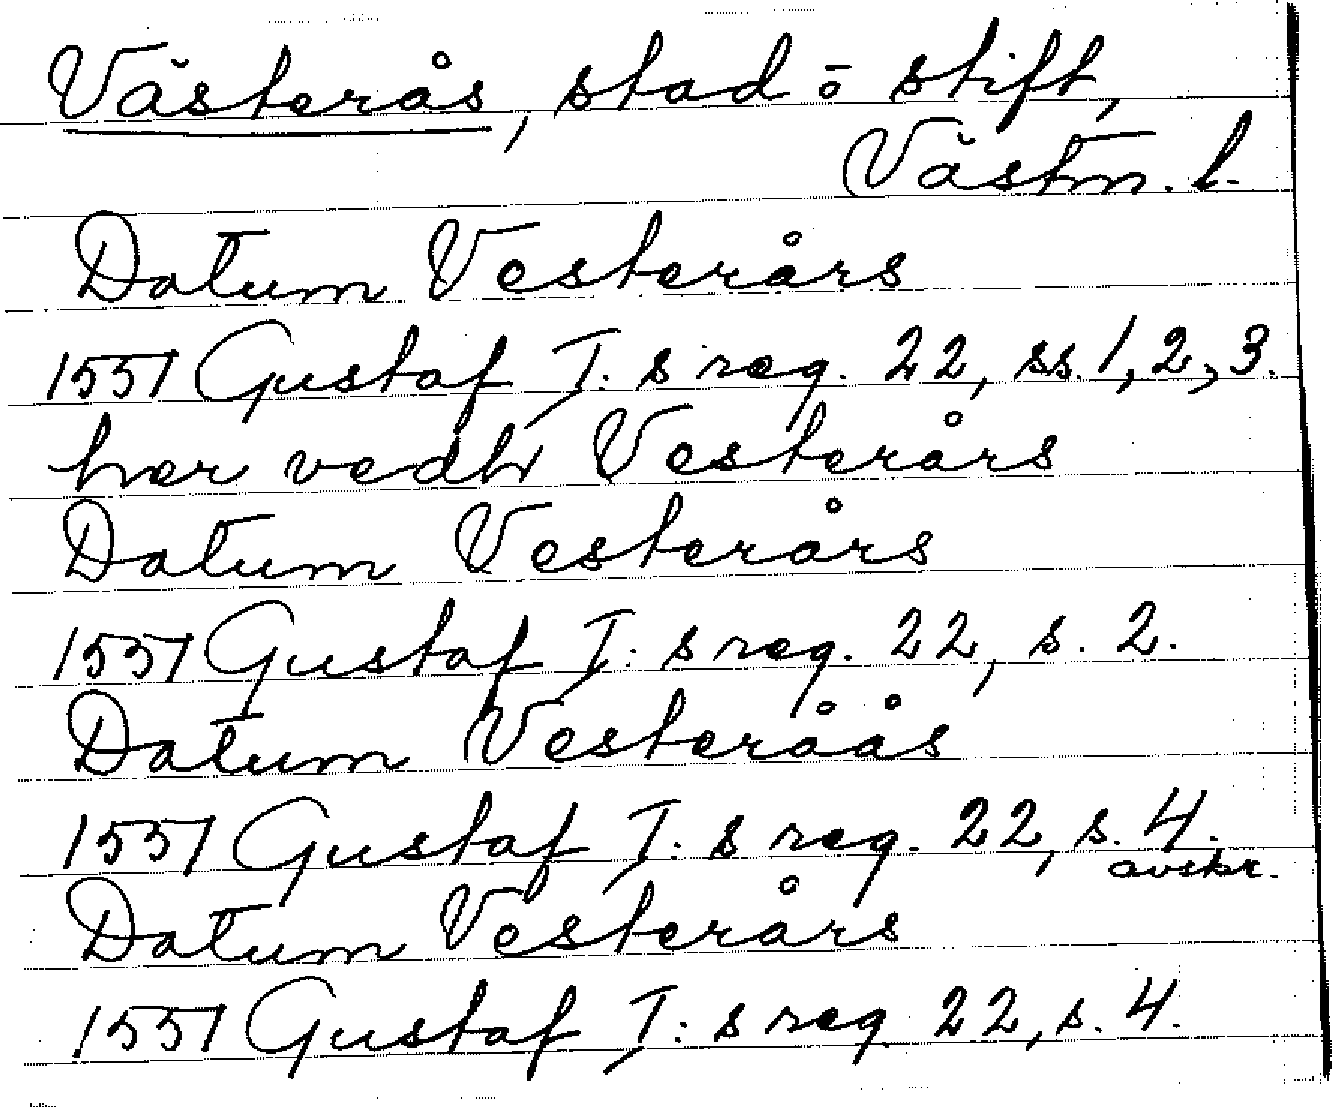 Västerås, stad o stift,
Västm. l.
Datum Vesterårs
1551 Gustaf I: s reg. 22, ss. 1, 2, 3.
her vedh Vesterårs
Datum Vesterårs
1551 Gustaf I: s reg. 22, s. 2.
Datum Vesteråås
1551 Gustaf I: s reg. 22, s. 4.
avskr.
Datum Vesterårs
1551 Gustaf I: s reg. 22, s. 4.